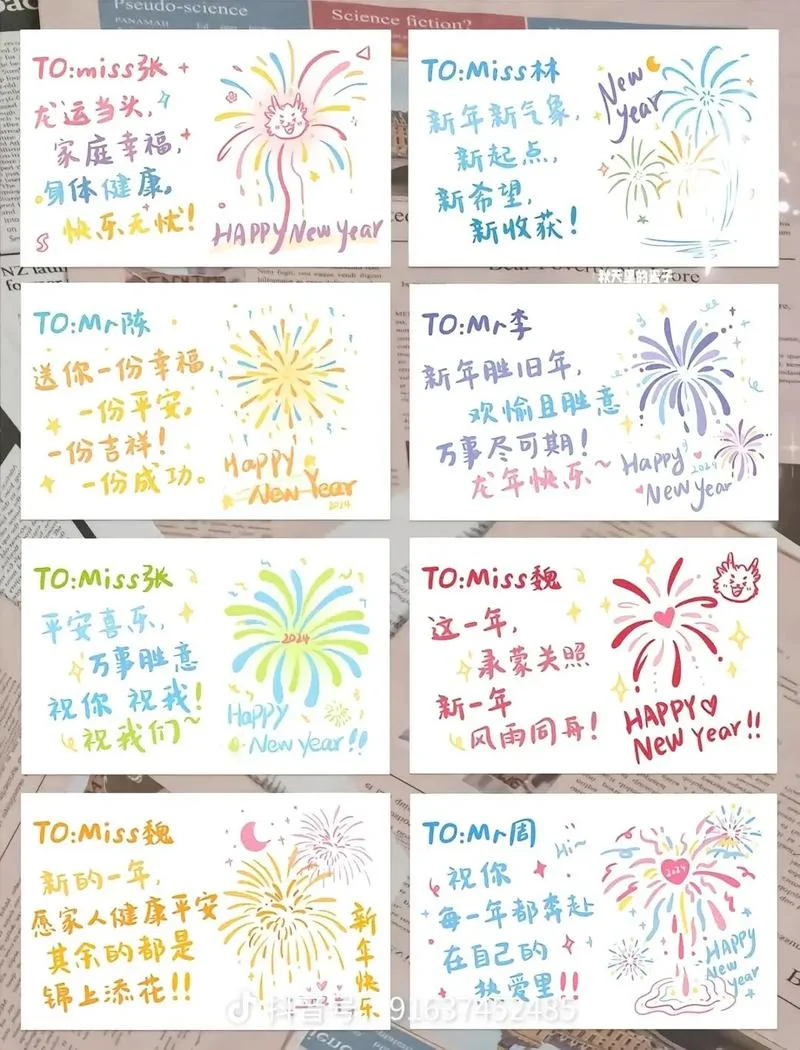 Pseudo-science
PANAMAH
Science fiction?
TO:miss张
龙运当头,
家庭幸福,
身体健康,
快乐无忧!
HAPPY New Year
TO:Miss林
新年新气象,
新起点,
新希望,
新收获!
New
year
NZ
TO:Mr陈
送你一份幸福
一份平安,
一份吉祥!
一份成功。
Happy
New Year
2024
TO:Mr李
新年胜旧年,
欢愉且胜意
万事尽可期!
龙年快乐~
Happy
2024
New year
TO:Miss张
平安喜乐,
万事胜意
祝你 祝我!
祝我们~
2024
Happy
New year!!
TO:Miss魏
这一年,
承蒙关照
新一年
风雨同舟!
HAPPY
New Year!!
TO:Miss魏
新的一年,
愿家人健康平安
其余的都是
锦上添花!!
新年快乐
TO:Mr周
Hi~
祝你
每一年都奔赴
在自己的
热爱里!!
2024
HAPPY
New
year
抖音号:91637452485